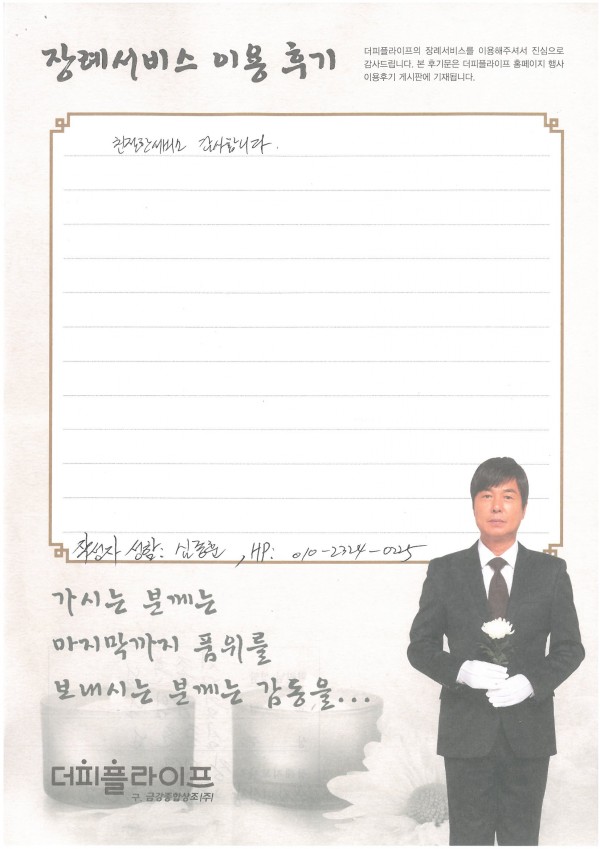 장례서비스 이용 후기
더피플라이프의 장례서비스를 이용해주셔서 진심으로
감사드립니다. 본 후기문은 더피플라이프 홈페이지 행사
이용후기 게시판에 기재됩니다.
친절한 서비스 감사합니다.
작성자 성함: 심종훈, HP: 010-2324-0125
가시는 분께는
마지막까지 품위를
보내시는 분께는 감동을...
더피플라이프
구. 금강종합상조(주)